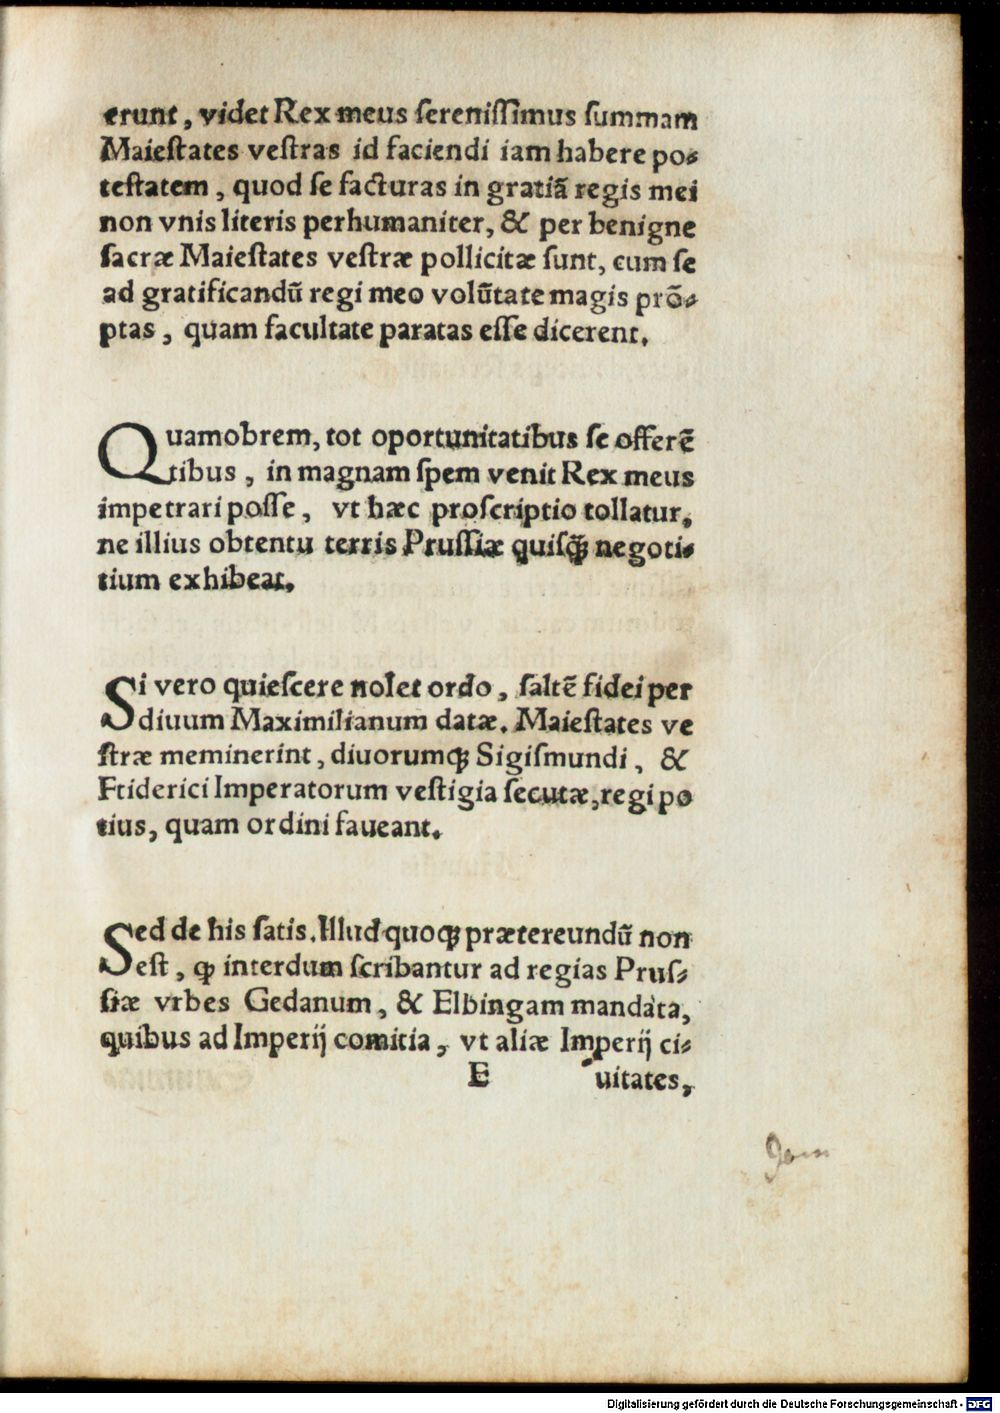 erunt, videt Rex meus ſereniſſimus ſummam
Maieſtates veſtras id faciendi iam habere po-
teſtatem, quod ſe facturas in gratiā regis mei
non vnis literis perhumaniter, & per benigne
ſacræ Maieſtates veſtræ pollicitæ ſunt, cum ſe
ad gratificandū regi meo volūtate magis prō-
ptas, quam facultate paratas eſſe dicerent.
Quamobrem, tot oportunitatibus ſe offerē
tibus, in magnam ſpem venit Rex meus
impetrari poſſe, vt hæc proſcriptio tollatur,
ne illius obtentu terris Pruſſiæ quiſꝙ negoti-
tium exhibeat.
Si vero quieſcere nolet ordo, ſaltē fidei per
diuum Maximilianum datæ. Maieſtates ve
ſtræ meminerint, diuorumꝙ Sigiſmundi, &
Friderici Imperatorum veſtigia ſecutæ, regi po
tius, quam ordini faueant.
Sed de his ſatis. Illud quoꝙ prætereundū non
eſt, ꝙ interdum ſcribantur ad regias Pruſ-
ſiæ vrbes Gedanum, & Elbingam mandata,
quibus ad Imperij comitia, vt aliæ Imperij ci-
E uitates,
Digitalisierung gefördert durch die Deutsche Forschungsgemeinschaft - DFG